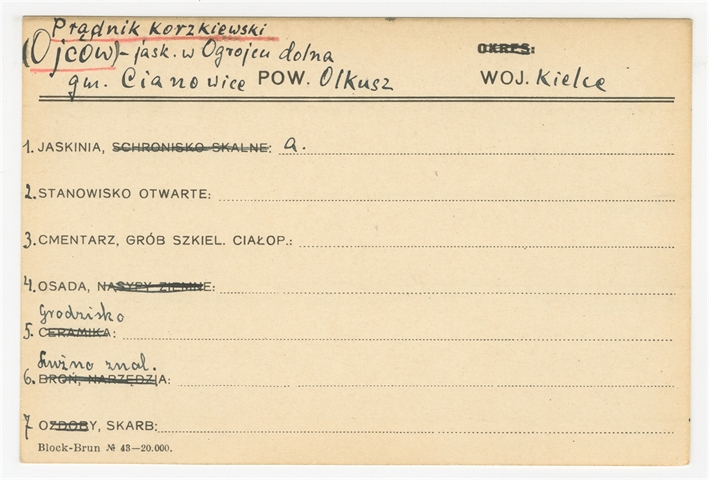 Prądnik Korzkiewski
(Ojców) - jask. w Ogrojcu dolna OKRES:
gm. Cianowice POW. Olkusz WOJ. Kielce
1. JASKINIA, SCHRONISKO SKALNE: a.
2. STANOWISKO OTWARTE:
3. CMENTARZ, GRÓB SZKIEL. CIAŁOP.:
4. OSADA, NASYPY ZIEMNE:
Grodzisko
5. CERAMIKA:
Luźno znal.
6. BROŃ, NARZĘDZIA:
7 OZDOBY, SKARB:
Block-Brun № 43—20.000.